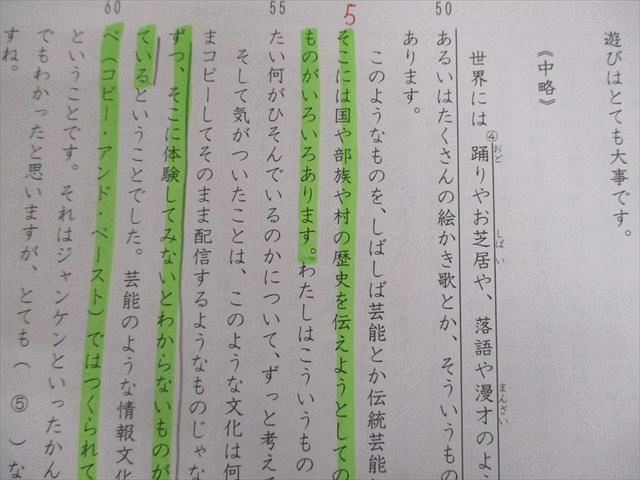 遊びはとても大事です。
《中略》
世界には④踊りやお芝居や、落語や漫才のよ
おど
しばい
まんざい
あるいはたくさんの絵かき歌とか、そういうもの
あります。
50
このようなものを、しばしば芸能とか伝統芸能
5
そこには国や部族や村の歴史を伝えようとしての
ものがいろいろあります。わたしはこういうもの
55
たい何がひそんでいるのかについて、ずっと考えて
そして気がついたことは、このような文化は何
まコピーしてそのまま配信するようなものじゃな
ずつ、そこに体験してみないとわからないものが
ているということでした。芸能のような情報文化
60
ペ(コピー・アンド・ペースト)ではつくられて
ということです。それはジャンケンといったかん
でもわかったと思いますが、とても( ⑤ )な
すね。